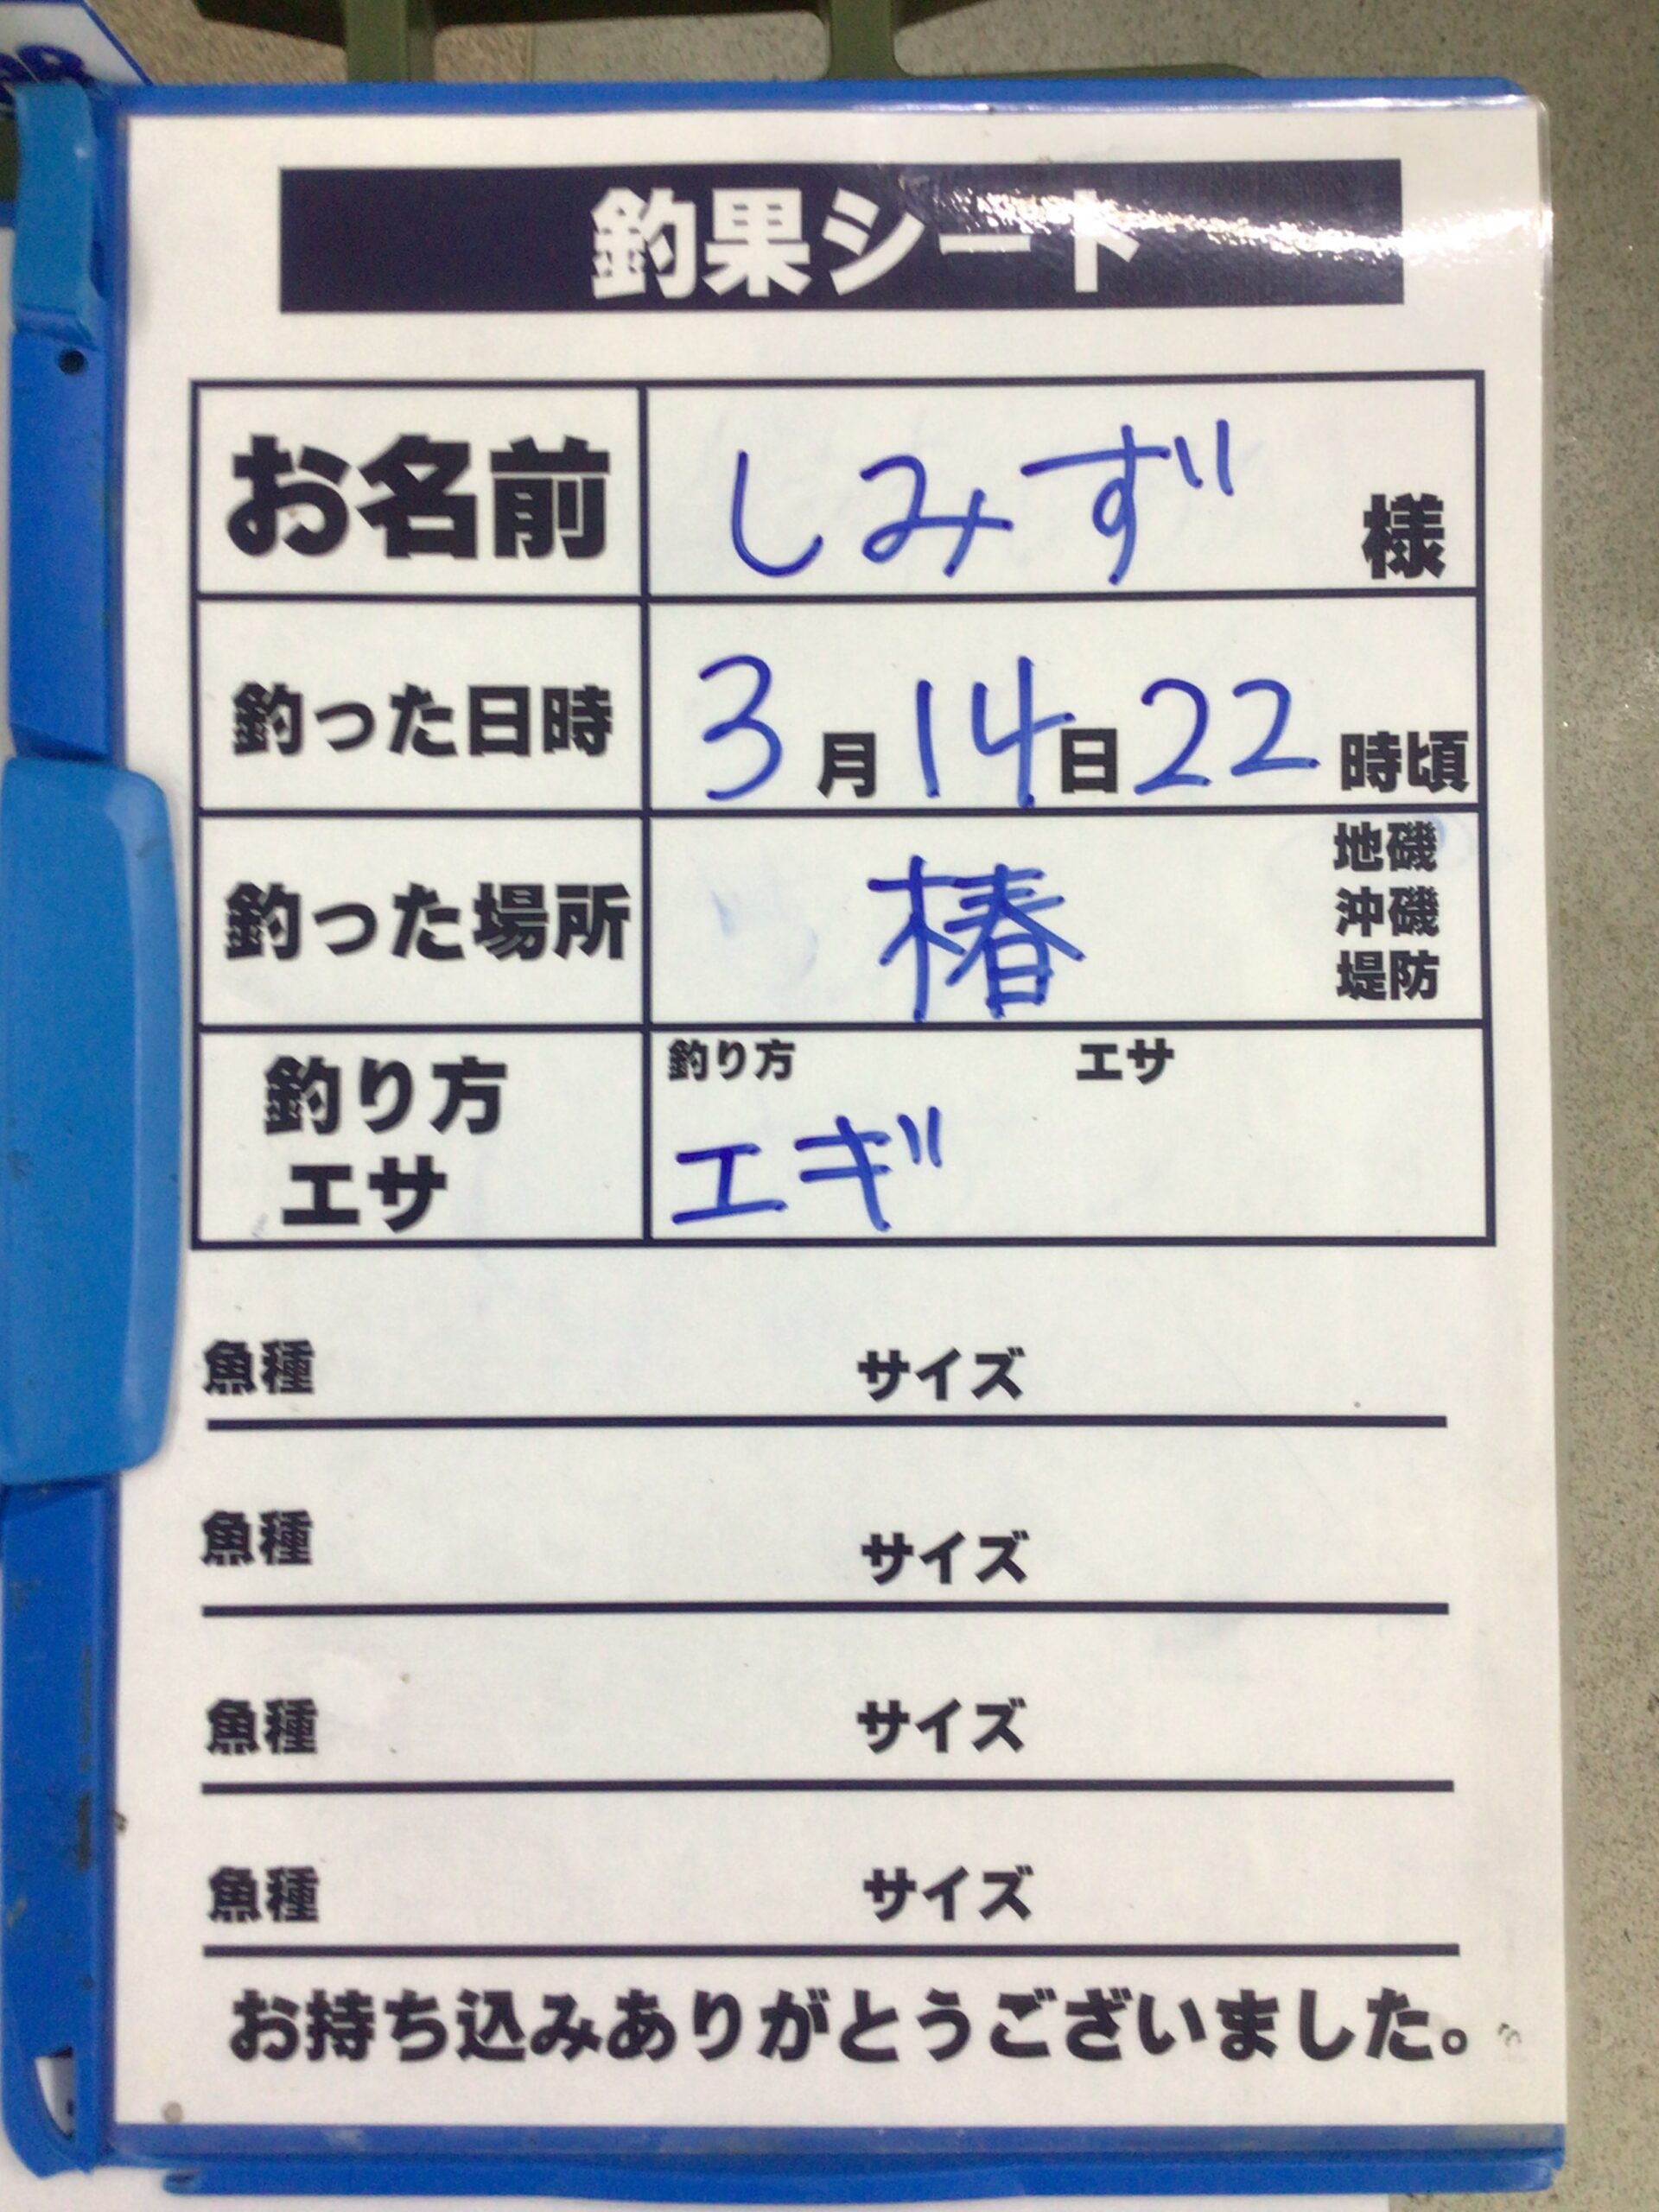 釣果シート
お名前 しみず 様
釣った日時 3月14日22時頃
釣った場所 椿 地磯 沖磯 堤防
釣り方 エサ
釣り方 エサ
エギ
魚種 サイズ
魚種 サイズ
魚種 サイズ
魚種 サイズ
お持ち込みありがとうございました。